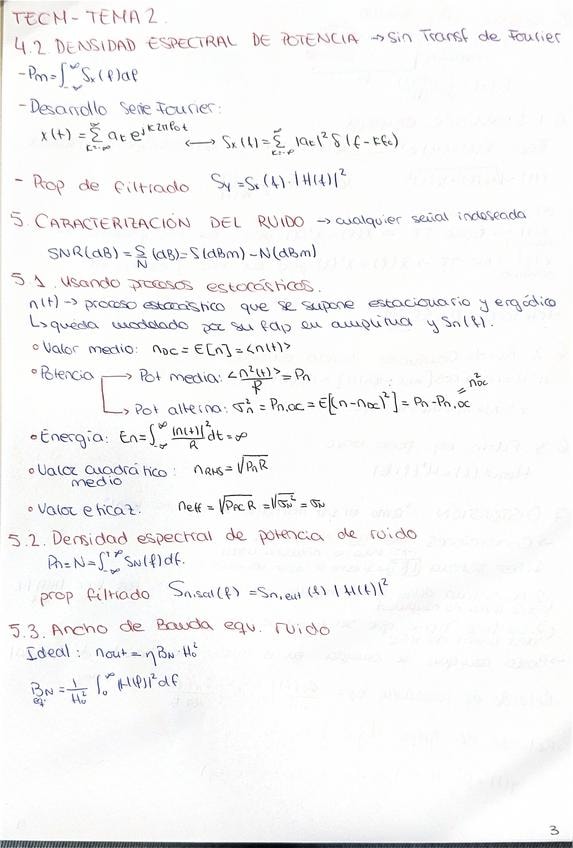 TECM - TEMA 2.
4.2. DENSIDAD ESPECTRAL DE POTENCIA → sin Transf de Fourier
- Pm = ∫_{-∞}^{∞} Sx(f)df
- Desarrollo Serie Fourier:
x(t) = Σ_{k=-∞}^{∞} a_k e^{jk2πf₀t} ⟷ Sx(f) = Σ_{k=-∞}^{∞} |a_k|² δ(f - kf₀)
- Prop de filtrado Sy = Sx(f) · |H(f)|²
5. CARACTERIZACIÓN DEL RUIDO → cualquier señal indeseada
SNR(dB) = S/N (dB) = S(dBm) - N(dBm)
5.1. Usando procesos estocásticos.
n(t) → proceso estocástico que se supone estacionario y ergódico
↳ queda modelado por su fdp en amplitud y Sn(f).
• Valor medio: n_DC = E[n] = <n(t)>
• Potencia → Pot media: <n²(t)>/R = Pn
→ Pot alterna: σn² = Pn,ac = E[(n - n_DC)²] = Pn - Pn,dc = n²_DC
• Energía: En = ∫_{-∞}^{∞} |n(t)|²/R dt = ∞
• Valor cuadrático medio : n_RMS = √(Pn R)
• Valor eficaz: neff = √(P_AC R) = √(σn²) = σn
5.2. Densidad espectral de potencia de ruido
Pn = N = ∫_{-∞}^{+∞} SN(f)df.
prop filtrado Sn,sal(f) = Sn,ent(f) |H(f)|²
5.3. Ancho de Banda equ. ruido
Ideal: nout = η B_N · H₀²
B_N eq. = 1/H₀² ∫_0^∞ |H(f)|² df
3